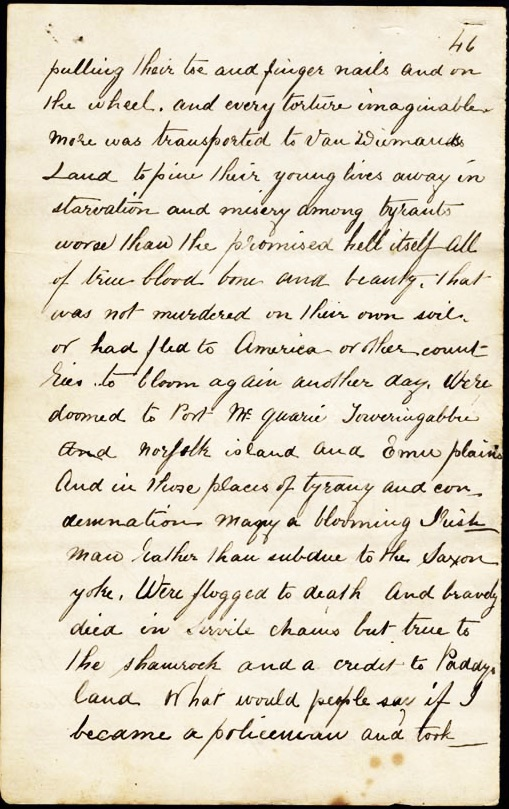 46
pulling their toe and finger nails and on
the wheel. and every torture imaginable
more was transported to Van Diemands
Land to pine their young lives away in
starvation and misery among tyrants
worse than the promised hell itself all
of true blood bone and beauty. that
was not murdered on their own soil.
or had fled to America or other count
ries. to bloom again another day. Were
doomed to Port Mc quarie Toweringabbie
And norfolk island and Emu plains
And in those places of tyrany and con
demnation many a blooming Irish
man rather than subdue to the Saxon
yoke. Were flogged to death And bravely
died in servile chains but true to
the shamrock and a credit to Paddys
land What would people say if I
became a policeman and took